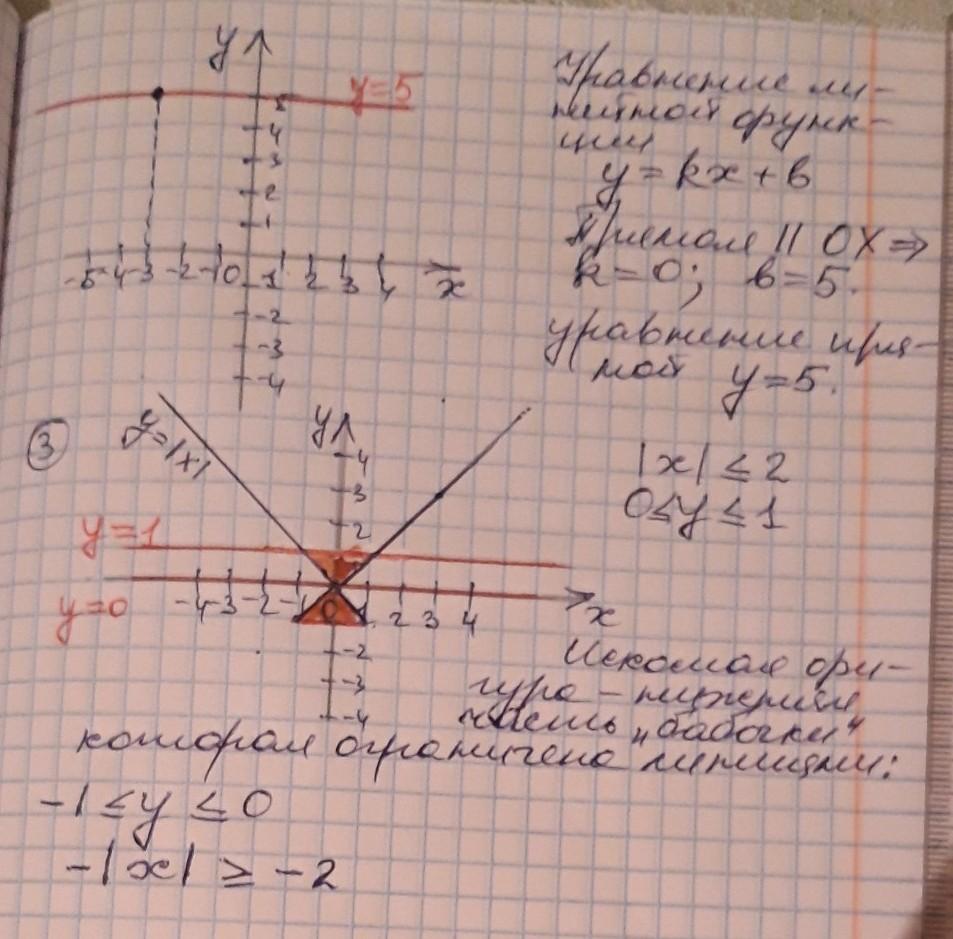 y
y=5
5
4
3
2
1
-5 -4 -3 -2 -1 0 1 2 3 4 x
-2
-3
-4
Уравнение ли-
нейной функ-
ции
y = kx + b
Прямая || OX ⇒
k = 0; b = 5.
уравнение пря-
мой y = 5.
3
y=|x|
y
4
3
2
y=1
y=0
-4 -3 -2 -1 0 1 2 3 4 x
-2
-3
-4
|x| ≤ 2
0 ≤ y ≤ 1
Искомая фи-
гура - нижняя
часть "бабочки"
которая ограничена линиями:
-1 ≤ y ≤ 0
-|x| ≥ -2